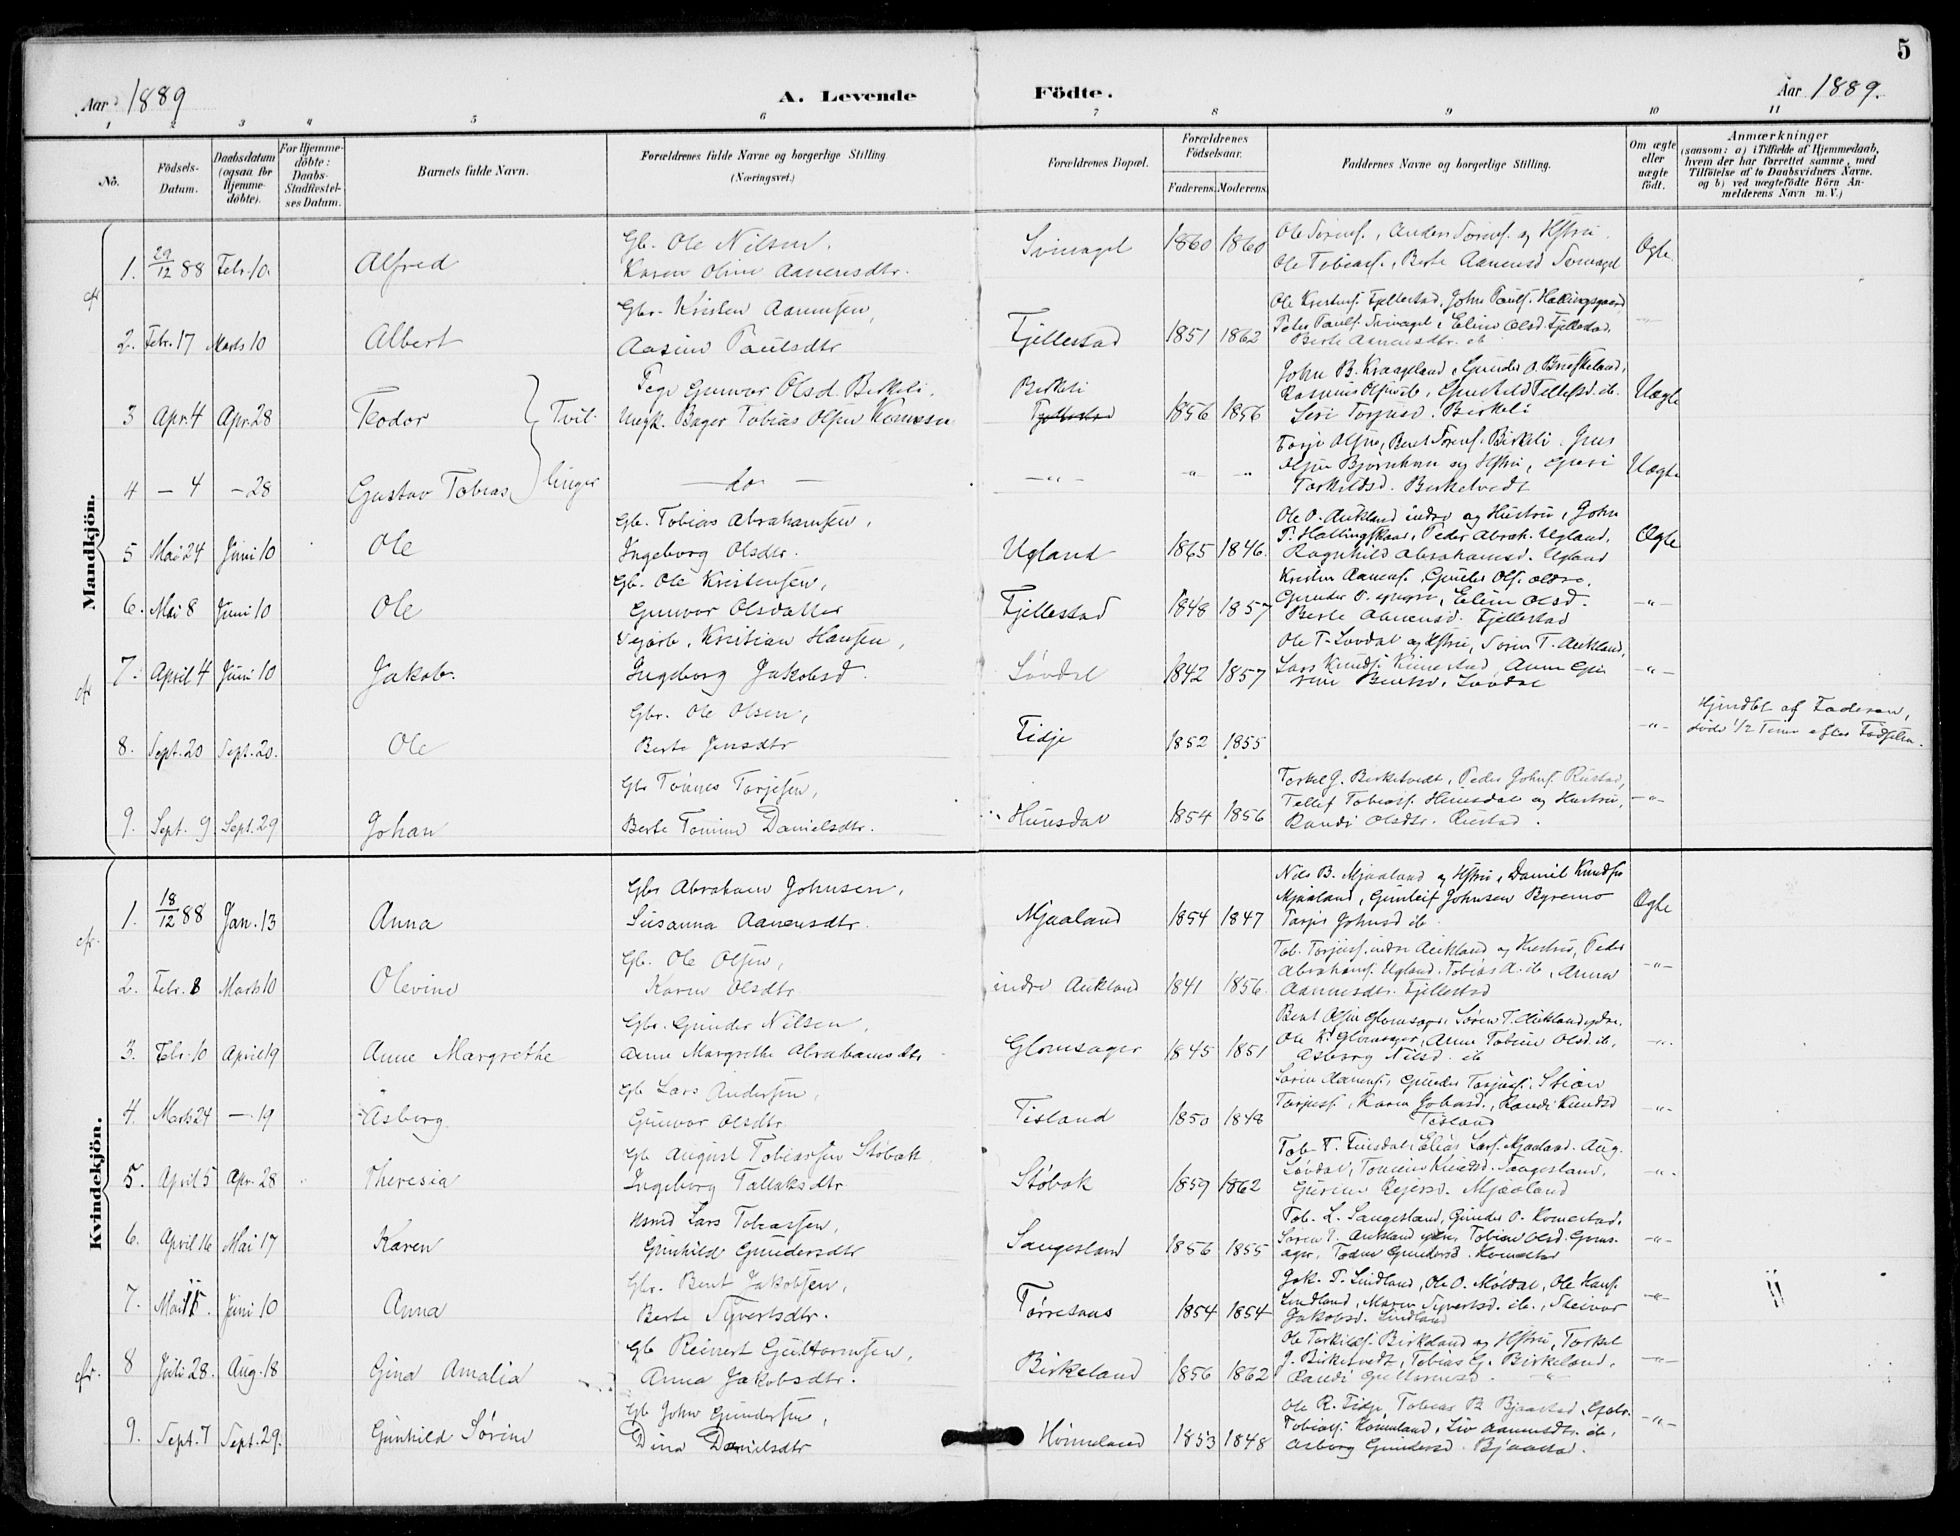 5
Aar 1889
A. Levende Fødte.
Aar 1889.
1 2 3 4 5 6 7 8 9 10 11
No.
Födsels-Datum.
Daabsdatum (ogsaa for Hjemme-döbte).
For Hjemme-döbte: Daabs-Stadfæstel-ses Datum.
Barnets fulde Navn.
Forældrenes fulde Navne og borgerlige Stilling (Næringsvei.)
Forældrenes Bopæl.
Forældrenes Födselsaar.
Faderens. Moderens.
Faddernes Navne og borgerlige Stilling.
Om ægte eller uægte født.
Anmærkninger
(saasom: a) i Tilfælde af Hjemmedaab, hvem der har forrettet samme, med Tilföielse af to Daabsvidners Navne. og b) ved uægtefödte Börn An-melderens Navn m. V.)
Mandkjön.
1. 29/12 88 Febr. 10. Alfred
Gb. Ole Nilsen,
Karen Oline Aanensdtr.
Svinagel 1860 1860
Ole Sørens., Anders Sørens. og Hstru.
Ole Tobiass., Berte Aanensd Svinagel
Ægte
2. Febr. 17 Marts 10 Albert
Gbr. Kristen Aanensen,
Aasine Paulsdtr
Fjellestad 1851 1862
Ole Kristens. Fjellestad, John Pauls. Hallingsgaard,
Peder Pauls. Svinagel, Eline Olsd. Fjellestad,
Berte Aanensdtr. ib
-"-
3 Apr. 4 Apr. 28 Teodor
Tvil-
Pige Gunvor Olsd. Birkeli,
Ungk. Bager Tobias Olsen
Birkeli
Fjellestad
1856 1856
John B. Kraageland, Gunder O.
Rasmus Olsen ib, Gunhild Tellefsd. ib.
Siri Torjusd. Birkeli
Uægte
4 — 4 — 28 Gustav Tobias
linger
— do —
— " —
" "
Torje Olsen, Bent Sørens. Birkeli. Jens
Olsen og Hstru, Guri
Torkildsd. Birketvedt
Uægte
5 Mai 24 Juni 10 Ole
Gb. Tobias Abrahamsen,
Ingeborg Olsdtr.
Ugland 1865 1846.
Ole O. Aukland indre og Hustru, John
P. Hallingskaar, Peder Abrah. Ugland,
Ragnhild Abrahamsd. Ugland
Ægte
6. Mai 8 Juni 10 Ole
Gb. Ole Kristensen,
Gunvor Olsdatter
Fjellestad 1848 1857
Kristen Aanens. Gunder Ols. ældre,
Gunder O. yngre, Eline Olsd.
Berte Aanensd. Fjellestad
-"-
7. April 4 Juni 10 Jakob.
Vejarb. Kristian Hansen,
Ingeborg Jakobsd.
Løvdal 1842 1857
Ole T. Løvdal og Hstru, Søren T. Aukland,
Lars Knuds. Kimestad, Anne
Bentsd. Løvdal
-"-
8. Sept. 20 Sept. 20. Ole
Gbr. Ole Olsen,
Berte Jensdtr
Fidje 1852 1855
-"-
Hjmdbt. af Faderen,
døde 1/2 Time efter Fødselen.
9. Sept. 9 Sept. 29 Johan
Gbr Tønnes Torjesen,
Berte Tomine Danielsdtr.
Hunsdal 1854 1856
Terkel G. Birketvedt, Peder Johns. Rustad,
Tellef Tobiass. Hunsdal og Hustru,
Randi Olsdtr. Rustad.
-"-
Kvindekjön.
1. 18/12 88 Jan. 13 Anna
Gbr Abraham Johnsen,
Susanna Aanensdtr.
Mjaaland 1854 1847
Nils B. Mjaaland og Hstru, Daniel Knudsen
Mjaaland, Gunleif Johnsen Byremo
Torjer Johnsd ib
Ægte
2. Febr. 8 Marts 10 Olevine
Gb. Ole Olsen,
Karen Olsdtr
indre Aukland 1841 1856.
Tob. Torjuss. indre Aukland og Hustru, Peder
Abrahams. Ugland. Tobias A. ib., Anna
Aanensdtr. Fjellestad
-"-
3. Febr. 10 April 19 Anne Margrethe
Gbr. Gunder Nilsen,
Anne Margrethe Abrahamsdtr
Glomsager 1845 1851
Bent Olsen Glomsager, Søren T. Aukland ydre,
Ole K. Glomsager, Anne Tobine Olsd. ib.,
Asborg Nilsd. ib
-"-
4. Marts 24 — 19 Åsborg.
Gb Lars Andersen,
Gunvor Olsdtr.
Tisland 1850 1848
Søren Aanens., Gunder Torjuss., Stian
Torjuss., Karen Johnsd., Randi Knudsd
Tisland
-"-
5. April 5 Apr. 28 Theresia
Gb August Tobiassen Støbak
Ingeborg Tallaksdtr
Støbak 1859 1862
Tob. T. Finsdal, Elias Lars. Mjaaland. Aug.
Løvdal, Tomine Knudsd. Sangesland,
Gurine Rejersd. Mjaaland
-"-
6. April 16 Mai 17 Karen
Lars Tobiassen,
Gunhild Gundersdtr
Sangesland 1856 1855
Tob. L. Sangesland, Gunder O. Homestad,
Søren T. Aukland ydre, Tobine Olsd. Gloms-
ager, Todne Gundersd. Homestad
-"-
7. Mai 15. Juni 10 Anna
Gbr. Bent Jakobsen,
Berte Syvertsdtr.
Tørresaas 1854 1854
Jak. T. Lindland, Ole O. Møldal, Ole Hans.
Lindland, Maren Syvertsd. ib., Steinvor
Jakobsd. Lindland
-"-
8 Juli 28. Aug. 18 Gina Amalia
Gb Reinert Guttormsen,
Anna Jakobsdtr.
Birkeland 1856 1862
Ole Torkilds. Birkeland og Hstru, Torkel
J. Birketvedt, Tobias G. Birkeland,
Randi Guttormsd. "
-"-
9. Sept. 7 Sept. 29. Gunhild Sørine
Gb John Gundersen,
Dina Danielsdtr
Hønneland 1853 1848
Ole R. Fidje, Tobias B Bjaastad, Gabr.
Tobiass. Hønneland, Liv Aanensdtr. ib,
Asborg Gundersd. Bjaastad.
-"-